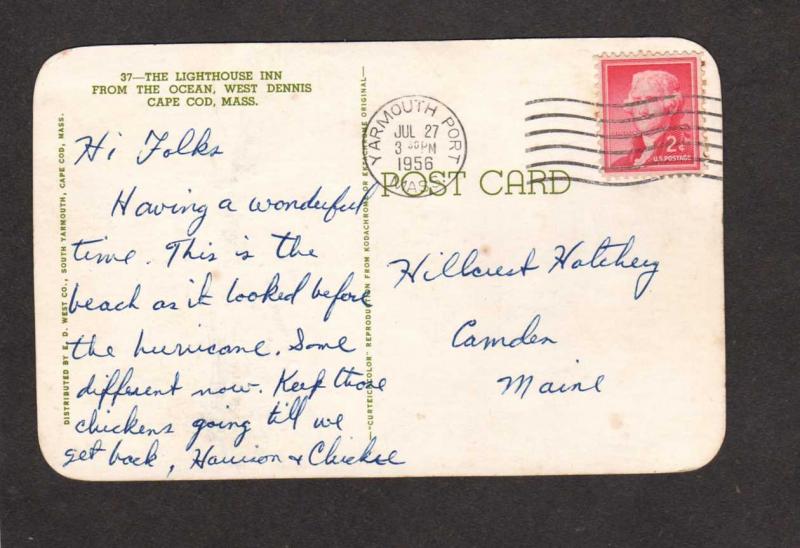 37—THE LIGHTHOUSE INN
FROM THE OCEAN, WEST DENNIS
CAPE COD, MASS.
Hi Folks
Having a wonderful
time. This is the
beach as it looked before
the hurricane. Some
different now. Keep those
chickens going till we
get back, Harrison & Chickie
DISTRIBUTED BY E. D. WEST CO., SOUTH YARMOUTH, CAPE COD, MASS.
—"CURTEICHCOLOR" REPRODUCTION FROM KODACHROME OR EKTACHROME ORIGINAL—
YARMOUTH PORT
JUL 27
3 30PM
1956
MASS.
2¢
U.S. POSTAGE
POST CARD
Hillcrest Hatchery
Camden
Maine